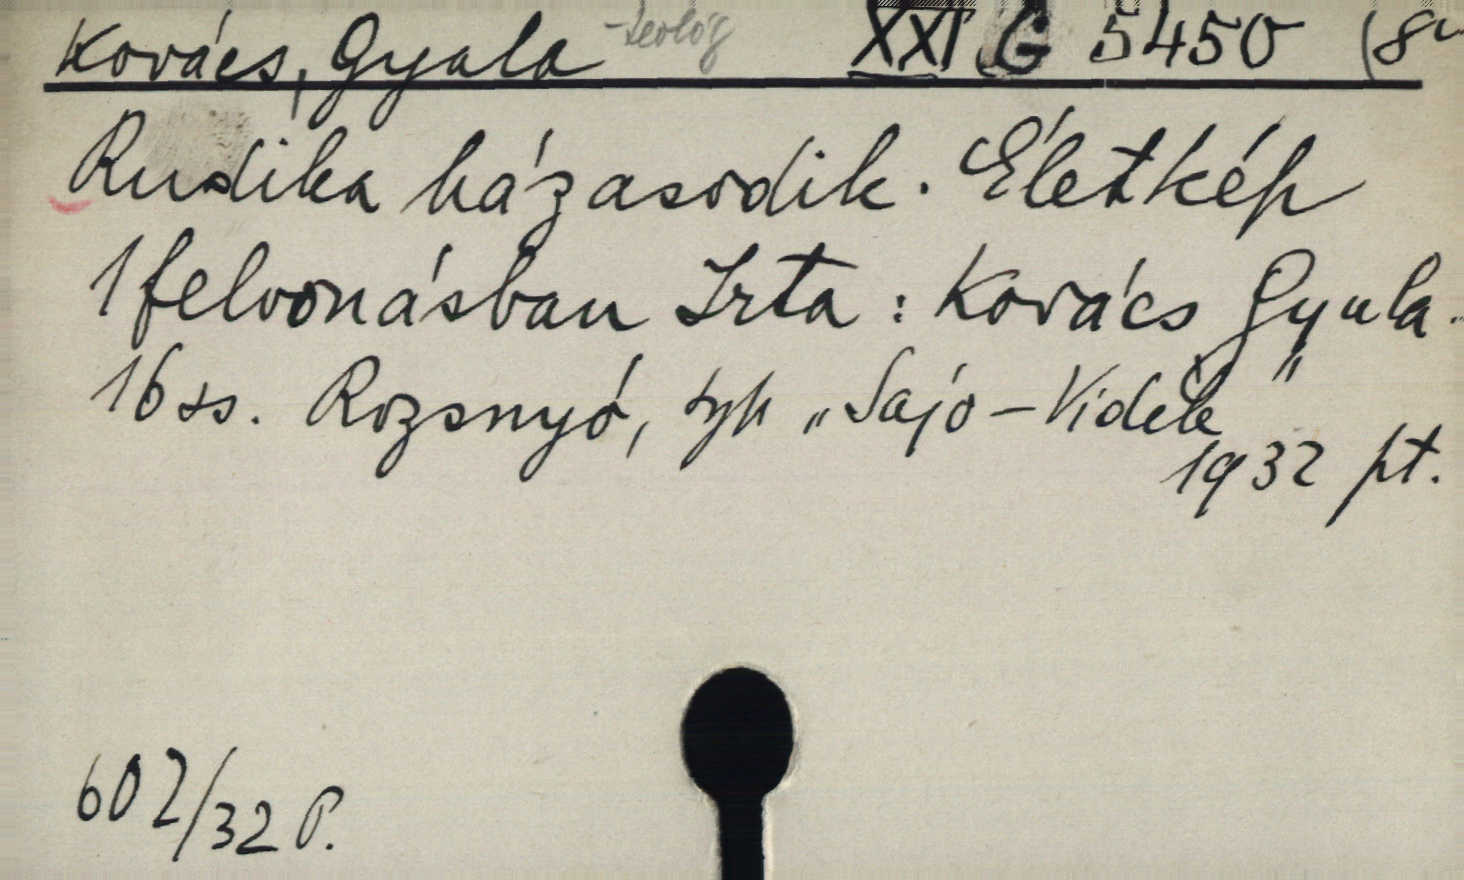 Kovács, Gyula - teológ XXI G 5450 (8
Rudika házasodik. Életkép
1 felvonásban Irta: Kovács Gyula.
16 ss. Rozsnyó, typ „Sajó-Vidék"
1932 pt.
602/32 P.